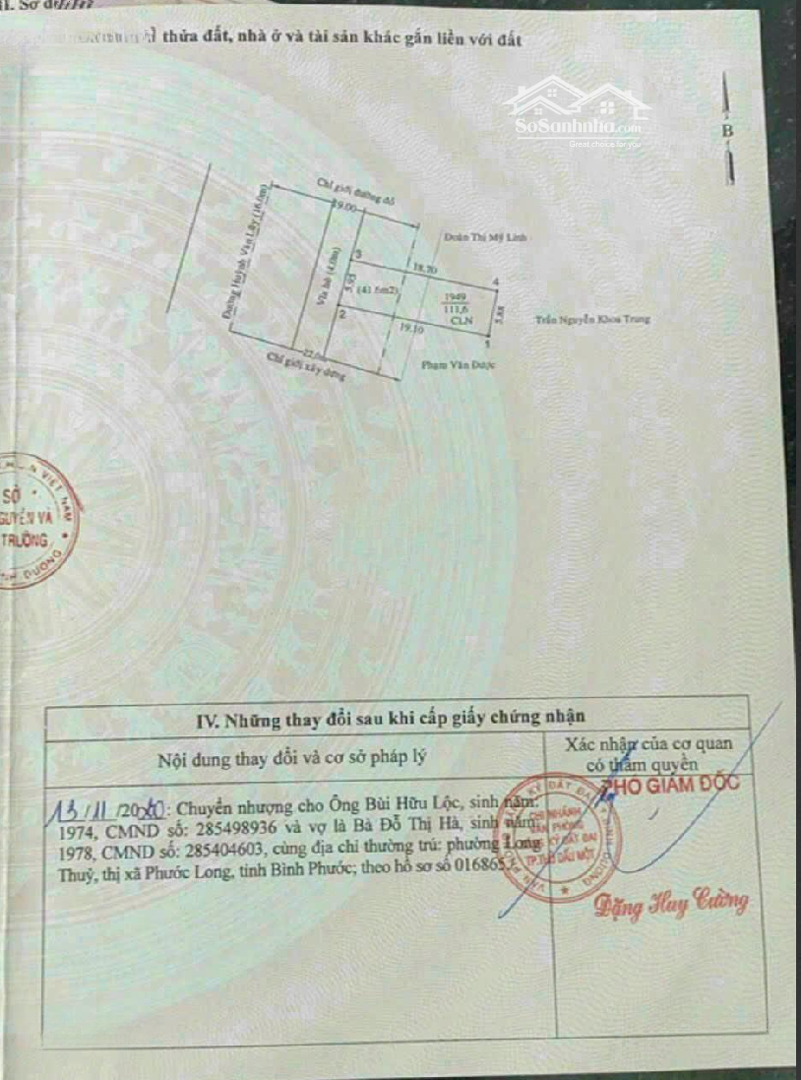 thửa đất, nhà ở và tài sản khác gắn liền với đất
SoSanhnha.com
Great choice for you
B
Chỉ giới đường đỏ
19.00
Đường Huỳnh Văn Lũy (16.0m)
Vỉa hè (4.0m)
Đoàn Thị Mỹ Linh
3
18.70
4
5.93
(41.6m2)
1949
111,6
CLN
5.88
Trần Nguyễn Khoa Trung
2
19.10
1
22.0m
Chỉ giới xây dựng
Phạm Văn Được
VIỆT NAM
SỞ
GUYÊN VÀ
TRƯỜNG
DƯƠNG
IV. Những thay đổi sau khi cấp giấy chứng nhận
Nội dung thay đổi và cơ sở pháp lý
Xác nhận của cơ quan
có thẩm quyền
13/11/2020: Chuyển nhượng cho Ông Bùi Hữu Lộc, sinh năm:
1974, CMND số: 285498936 và vợ là Bà Đỗ Thị Hà, sinh năm:
1978, CMND số: 285404603, cùng địa chỉ thường trú: phường Long
Thuỷ, thị xã Phước Long, tỉnh Bình Phước; theo hồ sơ số 016865
PHÓ GIÁM ĐỐC
CHI NHÁNH
VĂN PHÒNG
ĐĂNG KÝ ĐẤT ĐAI
TP.THỦ DẦU MỘT
Đặng Huy Cường